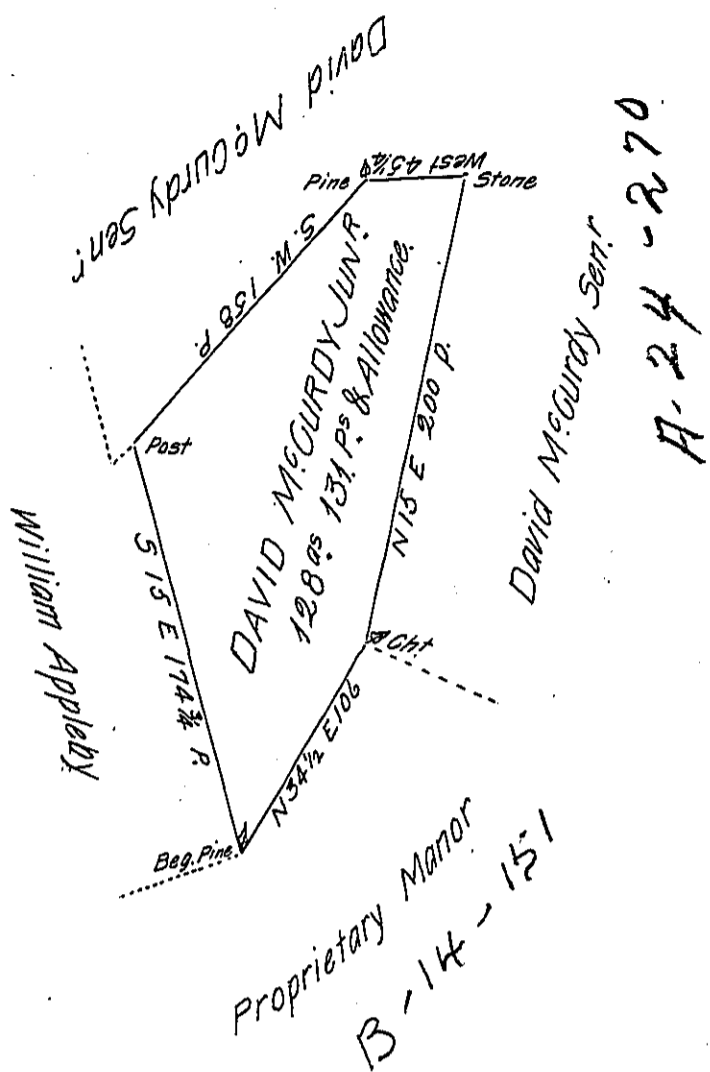 David McCurdy Sen.r
A. 24 - 270
Pine
West 45 1/4
Stone
S. W. 158 P.
DAVID McCURDY JUN.R
128 as. 131 Ps. & Allowance.
N 15 E 200 P.
David McCurdy Sen.r
Post
William Appleby
S 15 E 174 3/4 P.
Cht
N 34 1/2 E 106
Beg. Pine
Proprietary Manor
B - 14 - 151